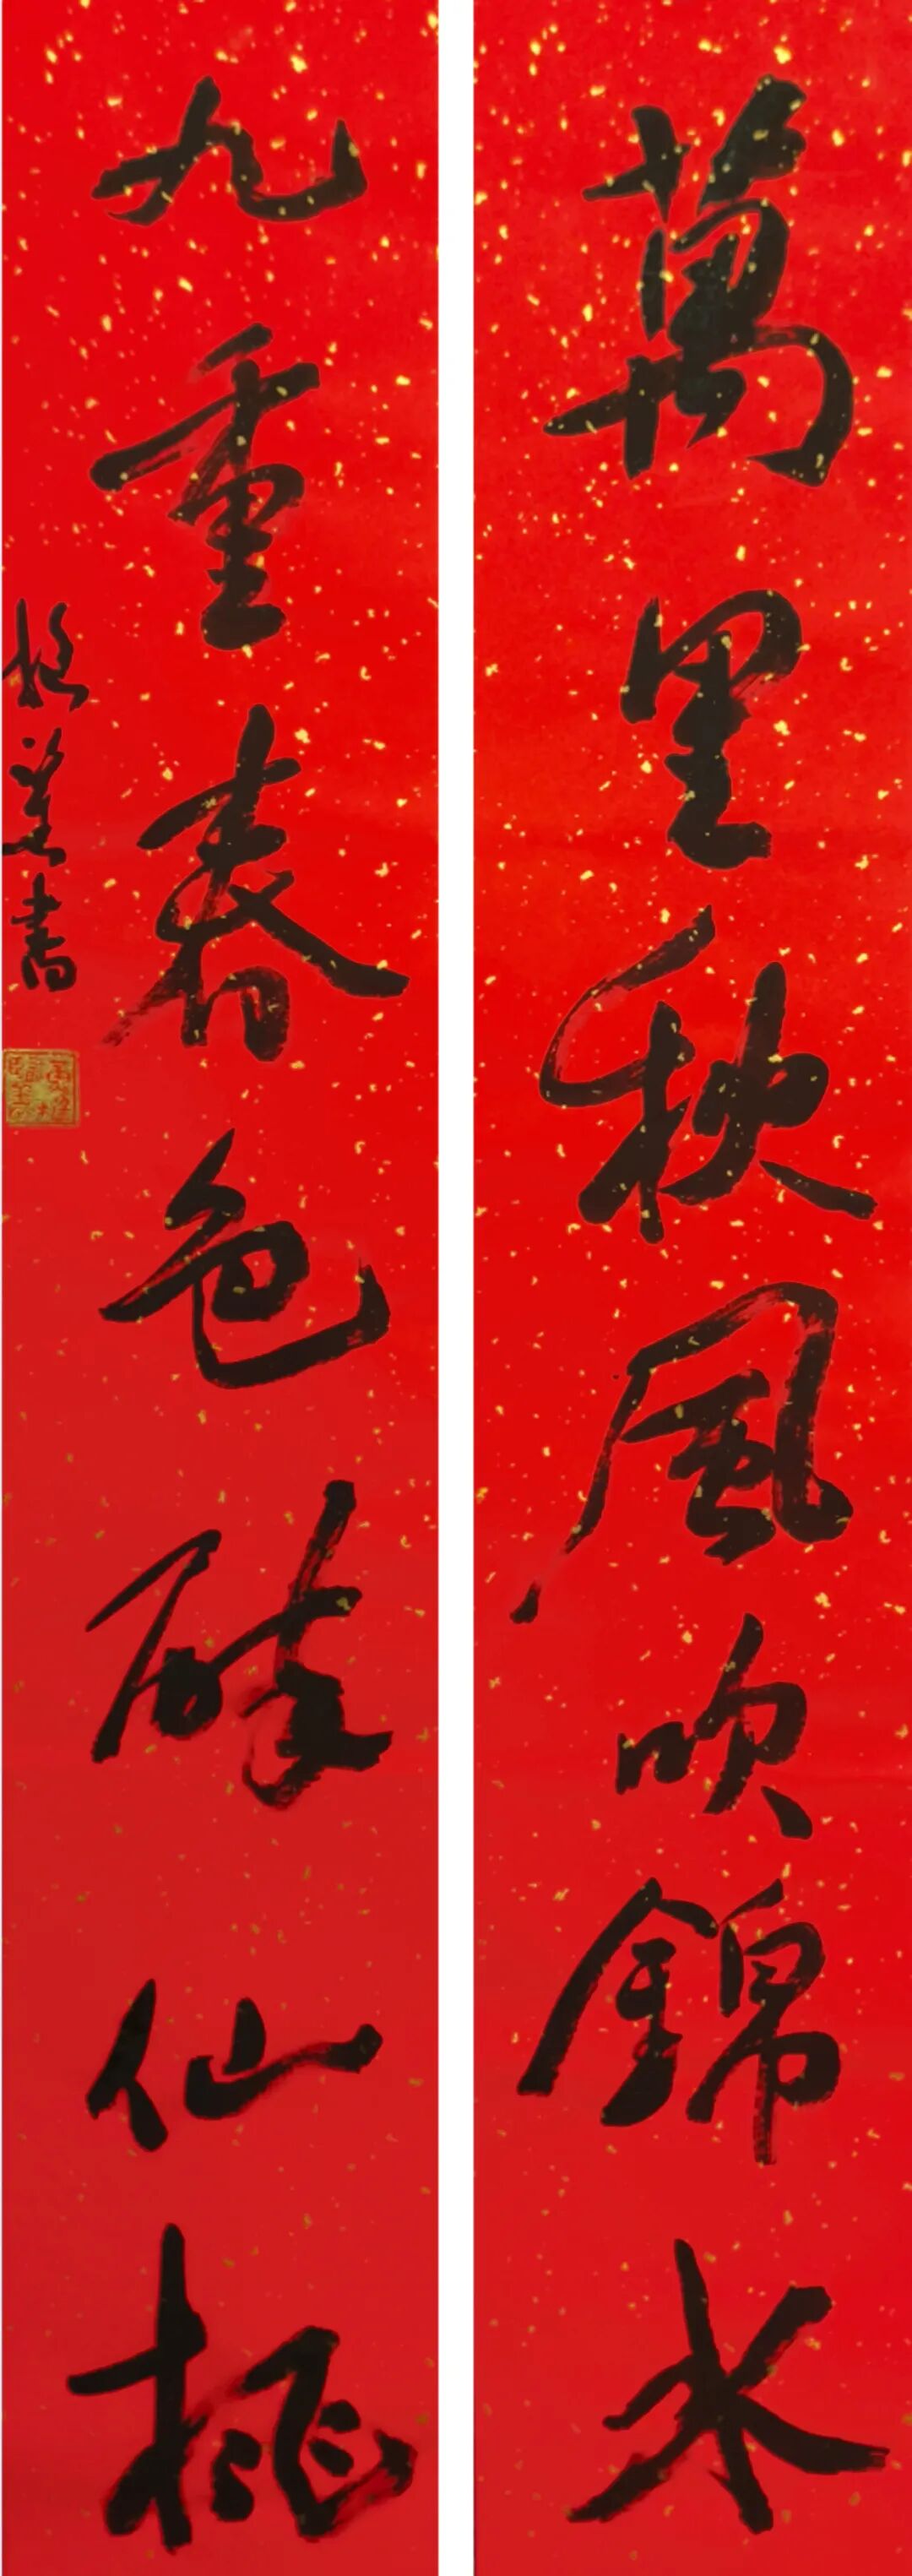 萬里秋風吹錦水
九重春色醉仙桃
書